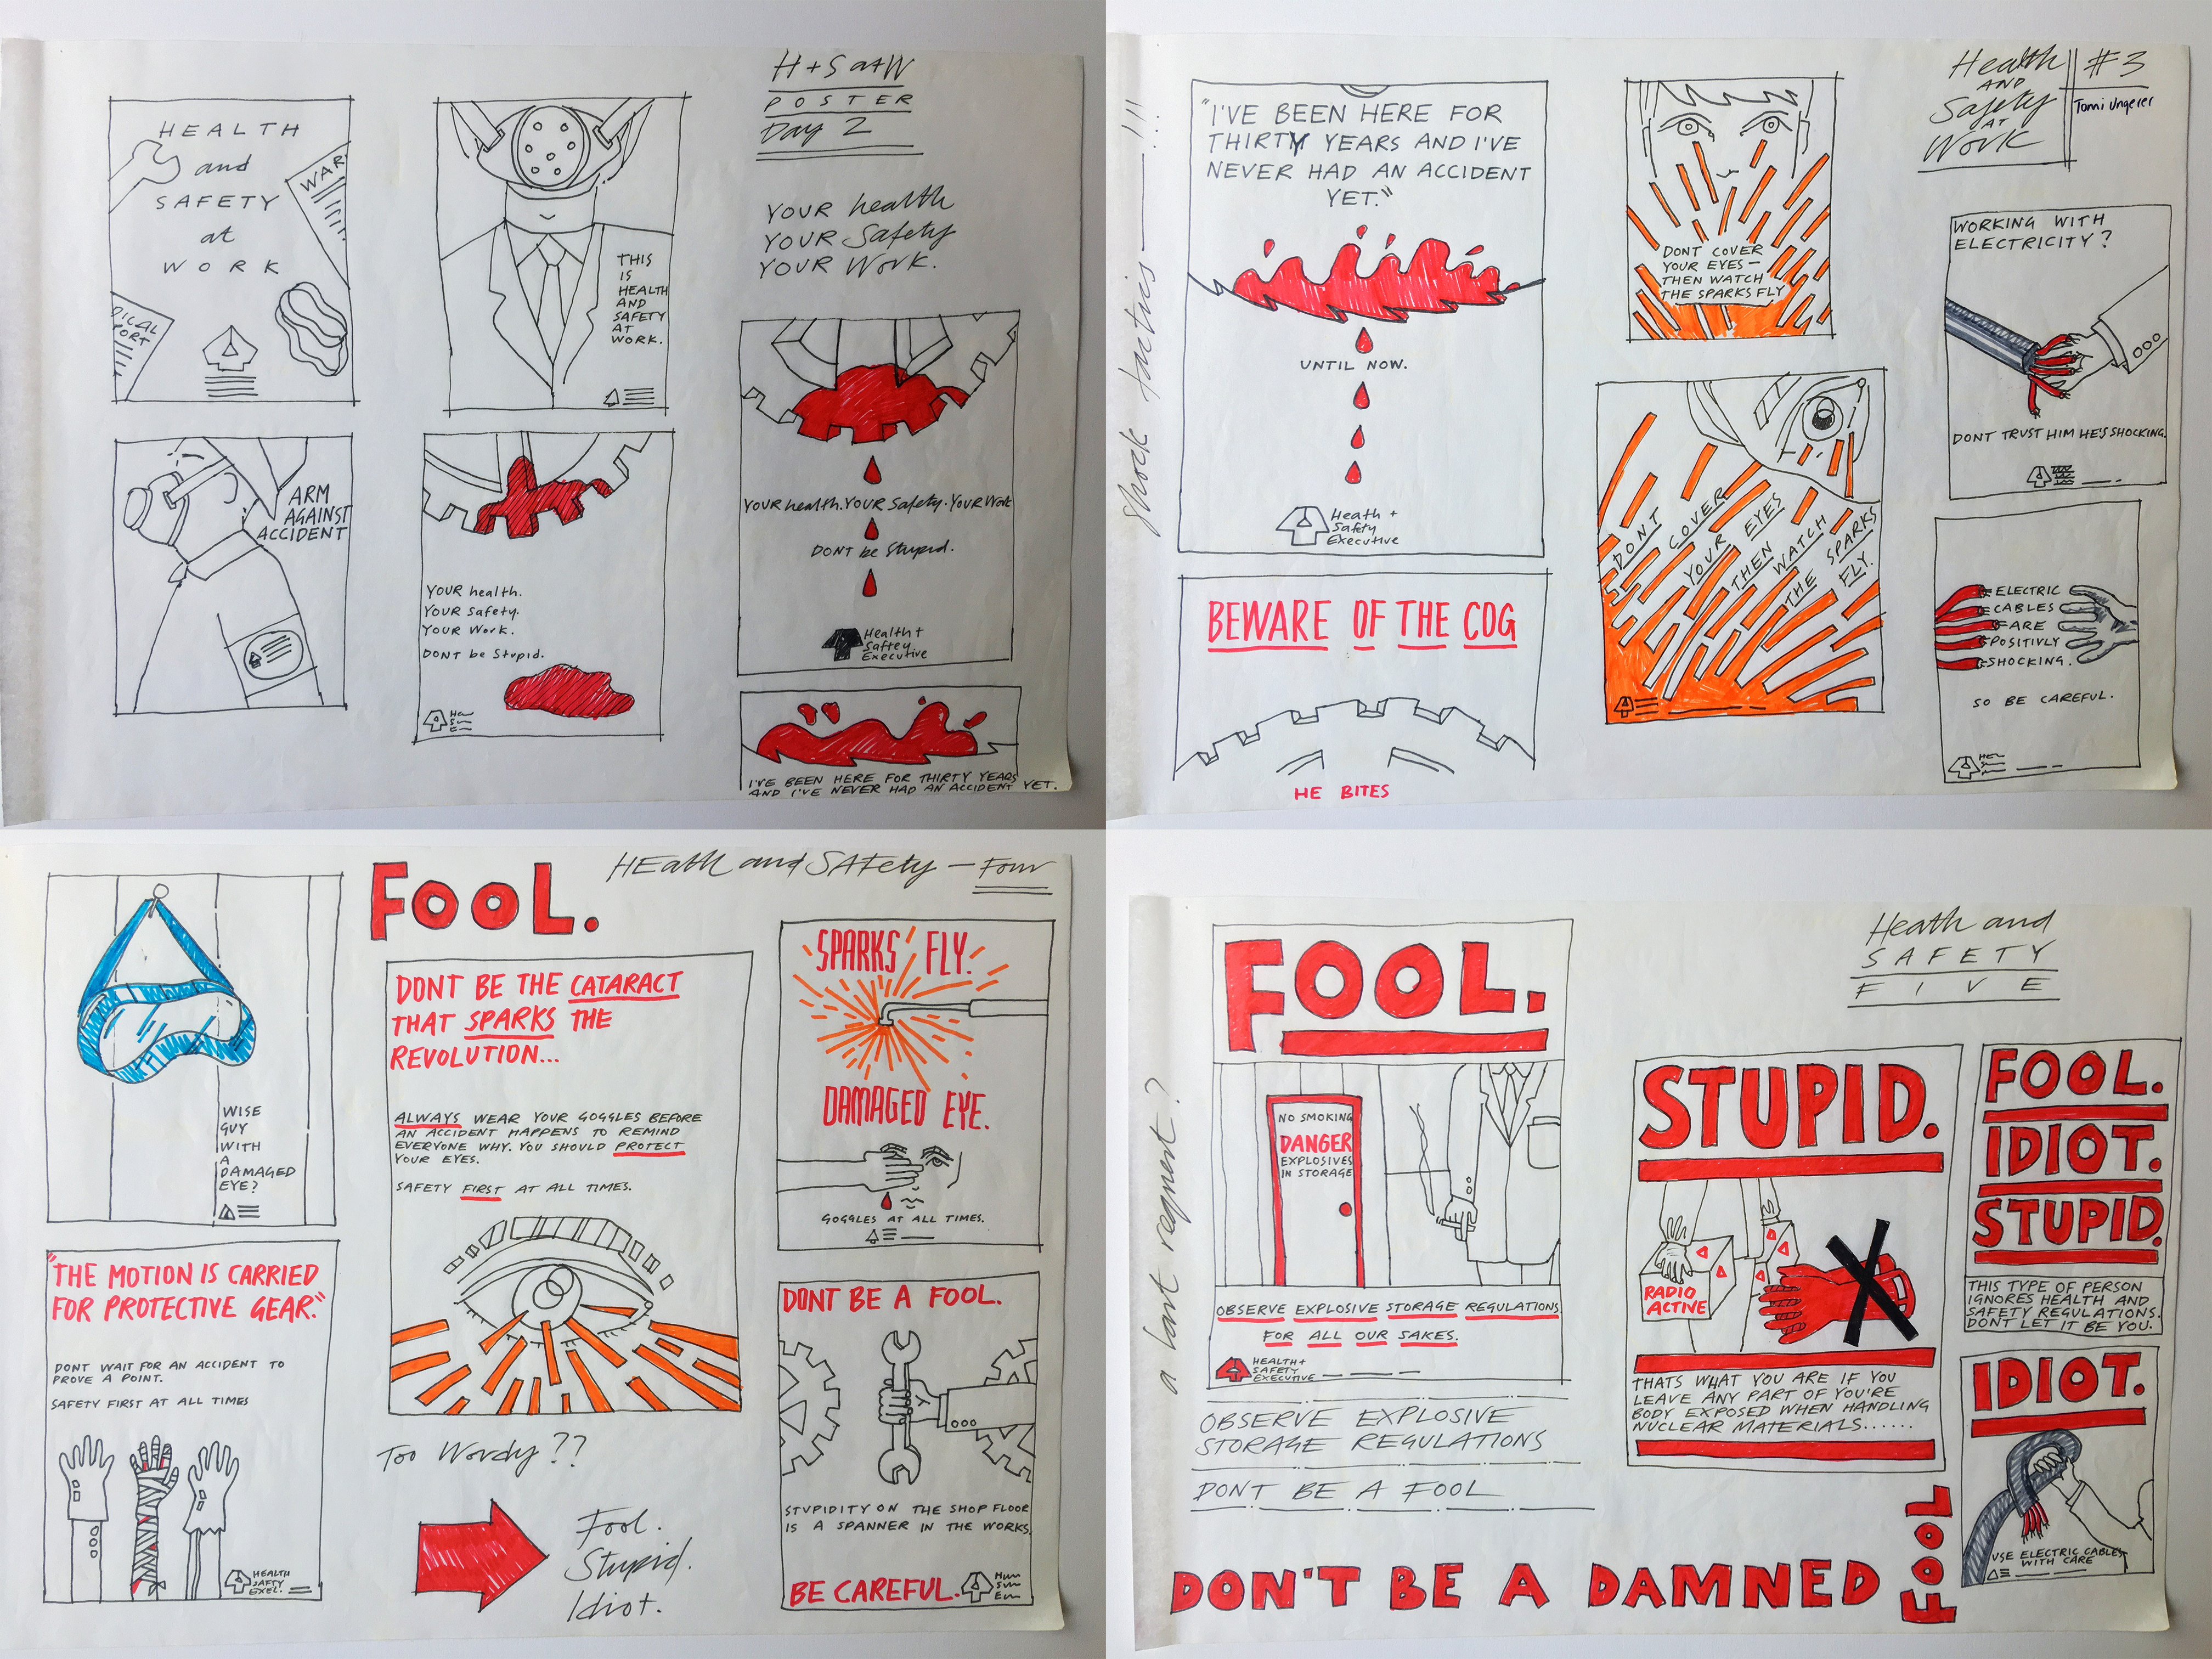 H+S at W
POSTER
Day 2
HEALTH
and
SAFETY
at
WORK
WAR
DICAL
PORT
THIS
IS
HEALTH
AND
SAFETY
AT
WORK.
YOUR health
YOUR Safety
YOUR Work.
ARM
AGAINST
ACCIDENT
YOUR health.
YOUR Safety.
YOUR Work.
DONT be Stupid.
YOUR health. YOUR Safety. YOUR Work
DONT be Stupid.
Health +
Saftey
Executive
I'VE BEEN HERE FOR THIRTY YEARS
AND I'VE NEVER HAD AN ACCIDENT YET.
Shock tactics — !!!
Health
AND
Safety
AT
Work
#3
Tomi Ungerer
"I'VE BEEN HERE FOR
THIRTY YEARS AND I'VE
NEVER HAD AN ACCIDENT
YET."
UNTIL NOW.
Heath +
Safety
Executive
BEWARE OF THE COG
HE BITES
DONT COVER
YOUR EYES —
THEN WATCH
THE SPARKS FLY
DONT COVER
YOUR EYES
THEN WATCH
THE SPARKS
FLY.
WORKING WITH
ELECTRICITY?
DONT TRUST HIM HE'S SHOCKING.
ELECTRIC
CABLES
ARE
POSITIVLY
SHOCKING.
SO BE CAREFUL.
HEath and SAFety — Four
WISE
GUY
WITH
A
DAMAGED
EYE?
FOOL.
DONT BE THE CATARACT
THAT SPARKS THE
REVOLUTION...
ALWAYS WEAR YOUR GOGGLES BEFORE
AN ACCIDENT HAPPENS TO REMIND
EVERYONE WHY. YOU SHOULD PROTECT
YOUR EYES.
SAFETY FIRST AT ALL TIMES.
SPARKS FLY.
DAMAGED EYE.
GOGGLES AT ALL TIMES.
"THE MOTION IS CARRIED
FOR PROTECTIVE GEAR."
DONT WAIT FOR AN ACCIDENT TO
PROVE A POINT.
SAFETY FIRST AT ALL TIMES
HEALTH
SAFTY
EXEC.
Too Wordy ??
Fool.
Stupid.
Idiot.
DONT BE A FOOL.
STUPIDITY ON THE SHOP FLOOR
IS A SPANNER IN THE WORKS.
BE CAREFUL.
Heath and
SAFETY
FIVE
FOOL.
NO SMOKING
DANGER
EXPLOSIVES
IN STORAGE
OBSERVE EXPLOSIVE STORAGE REGULATIONS
FOR ALL OUR SAKES.
HEALTH+
SAFETY
EXECUTIVE
OBSERVE EXPLOSIVE
STORAGE REGULATIONS
DONT BE A FOOL
STUPID.
RADIO
ACTIVE
THATS WHAT YOU ARE IF YOU
LEAVE ANY PART OF YOU'RE
BODY EXPOSED WHEN HANDLING
NUCLEAR MATERIALS......
FOOL.
IDIOT.
STUPID.
THIS TYPE OF PERSON
IGNORES HEALTH AND
SAFETY REGULATIONS.
DONT LET IT BE YOU.
IDIOT.
USE ELECTRIC CABLES
WITH CARE
DON'T BE A DAMNED
FOOL
a last